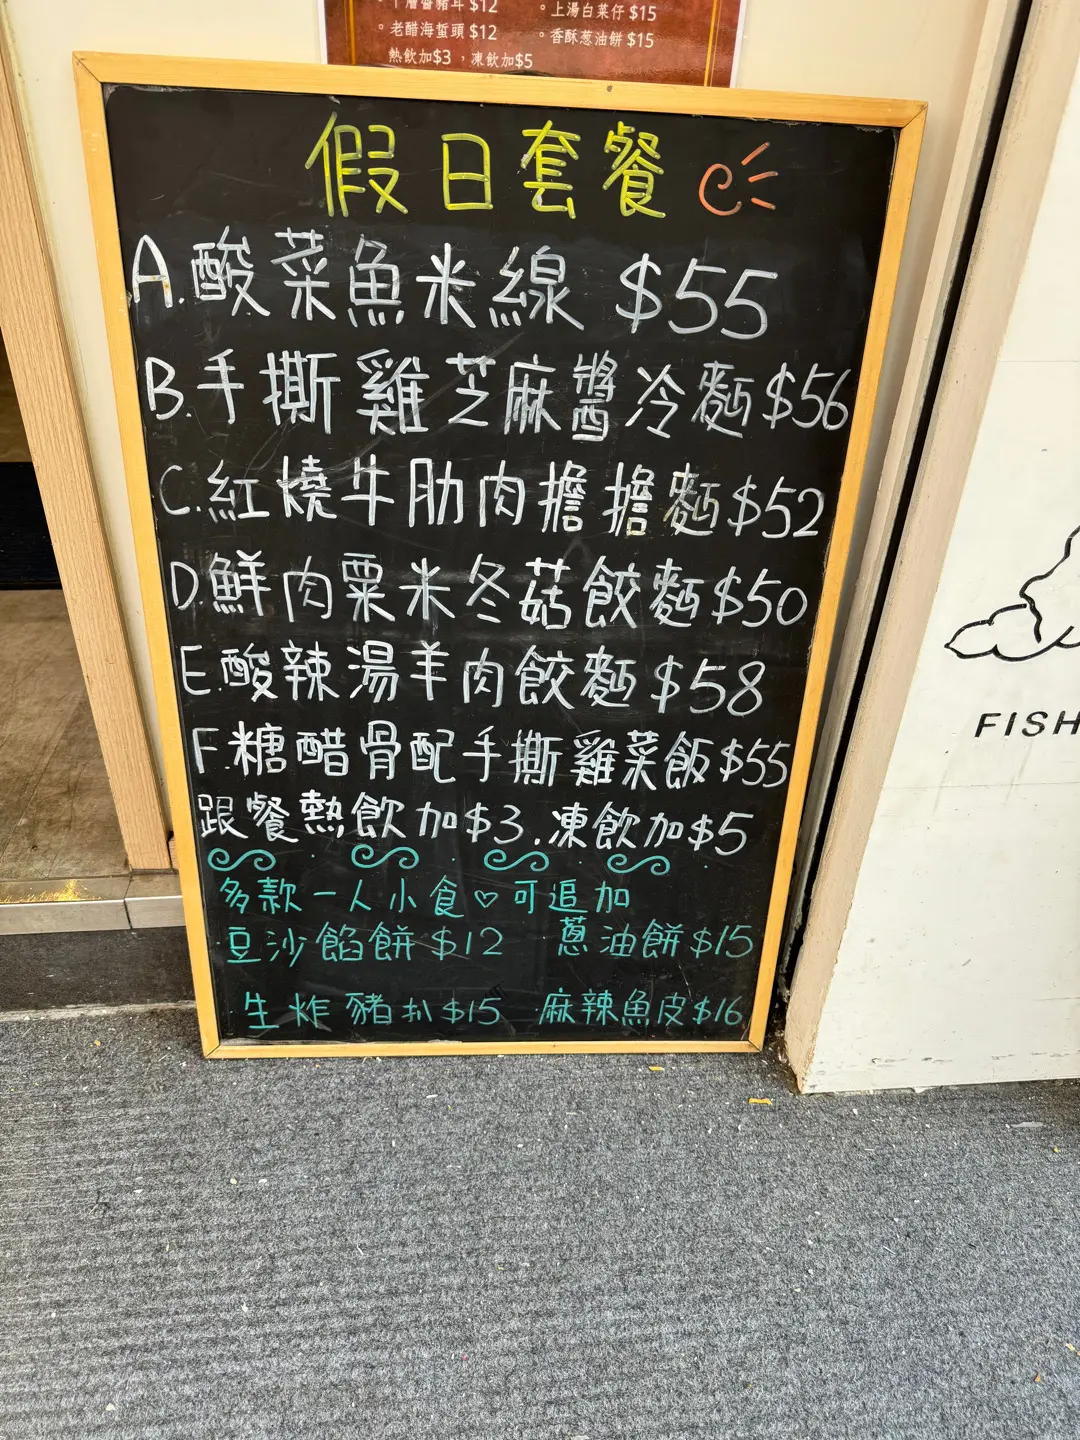 千層醬豬耳 $12 。上湯白菜仔 $15
。老醋海蜇頭 $12 。香酥葱油餅 $15
熱飲加$3 ，凍飲加$5
假日套餐
A.酸菜魚米線 $55
B.手撕雞芝麻醬冷麵$56
C.紅燒牛肋肉擔擔麵$52
D.鮮肉粟米冬菇餃麵$50
E.酸辣湯羊肉餃麵$58
F.糖醋骨配手撕雞菜飯$55
跟餐熱飲加$3.凍飲加$5
多款一人小食♡可追加
豆沙餡餅$12 蔥油餅$15
生炸豬扒$15 麻辣魚皮$16
FISH